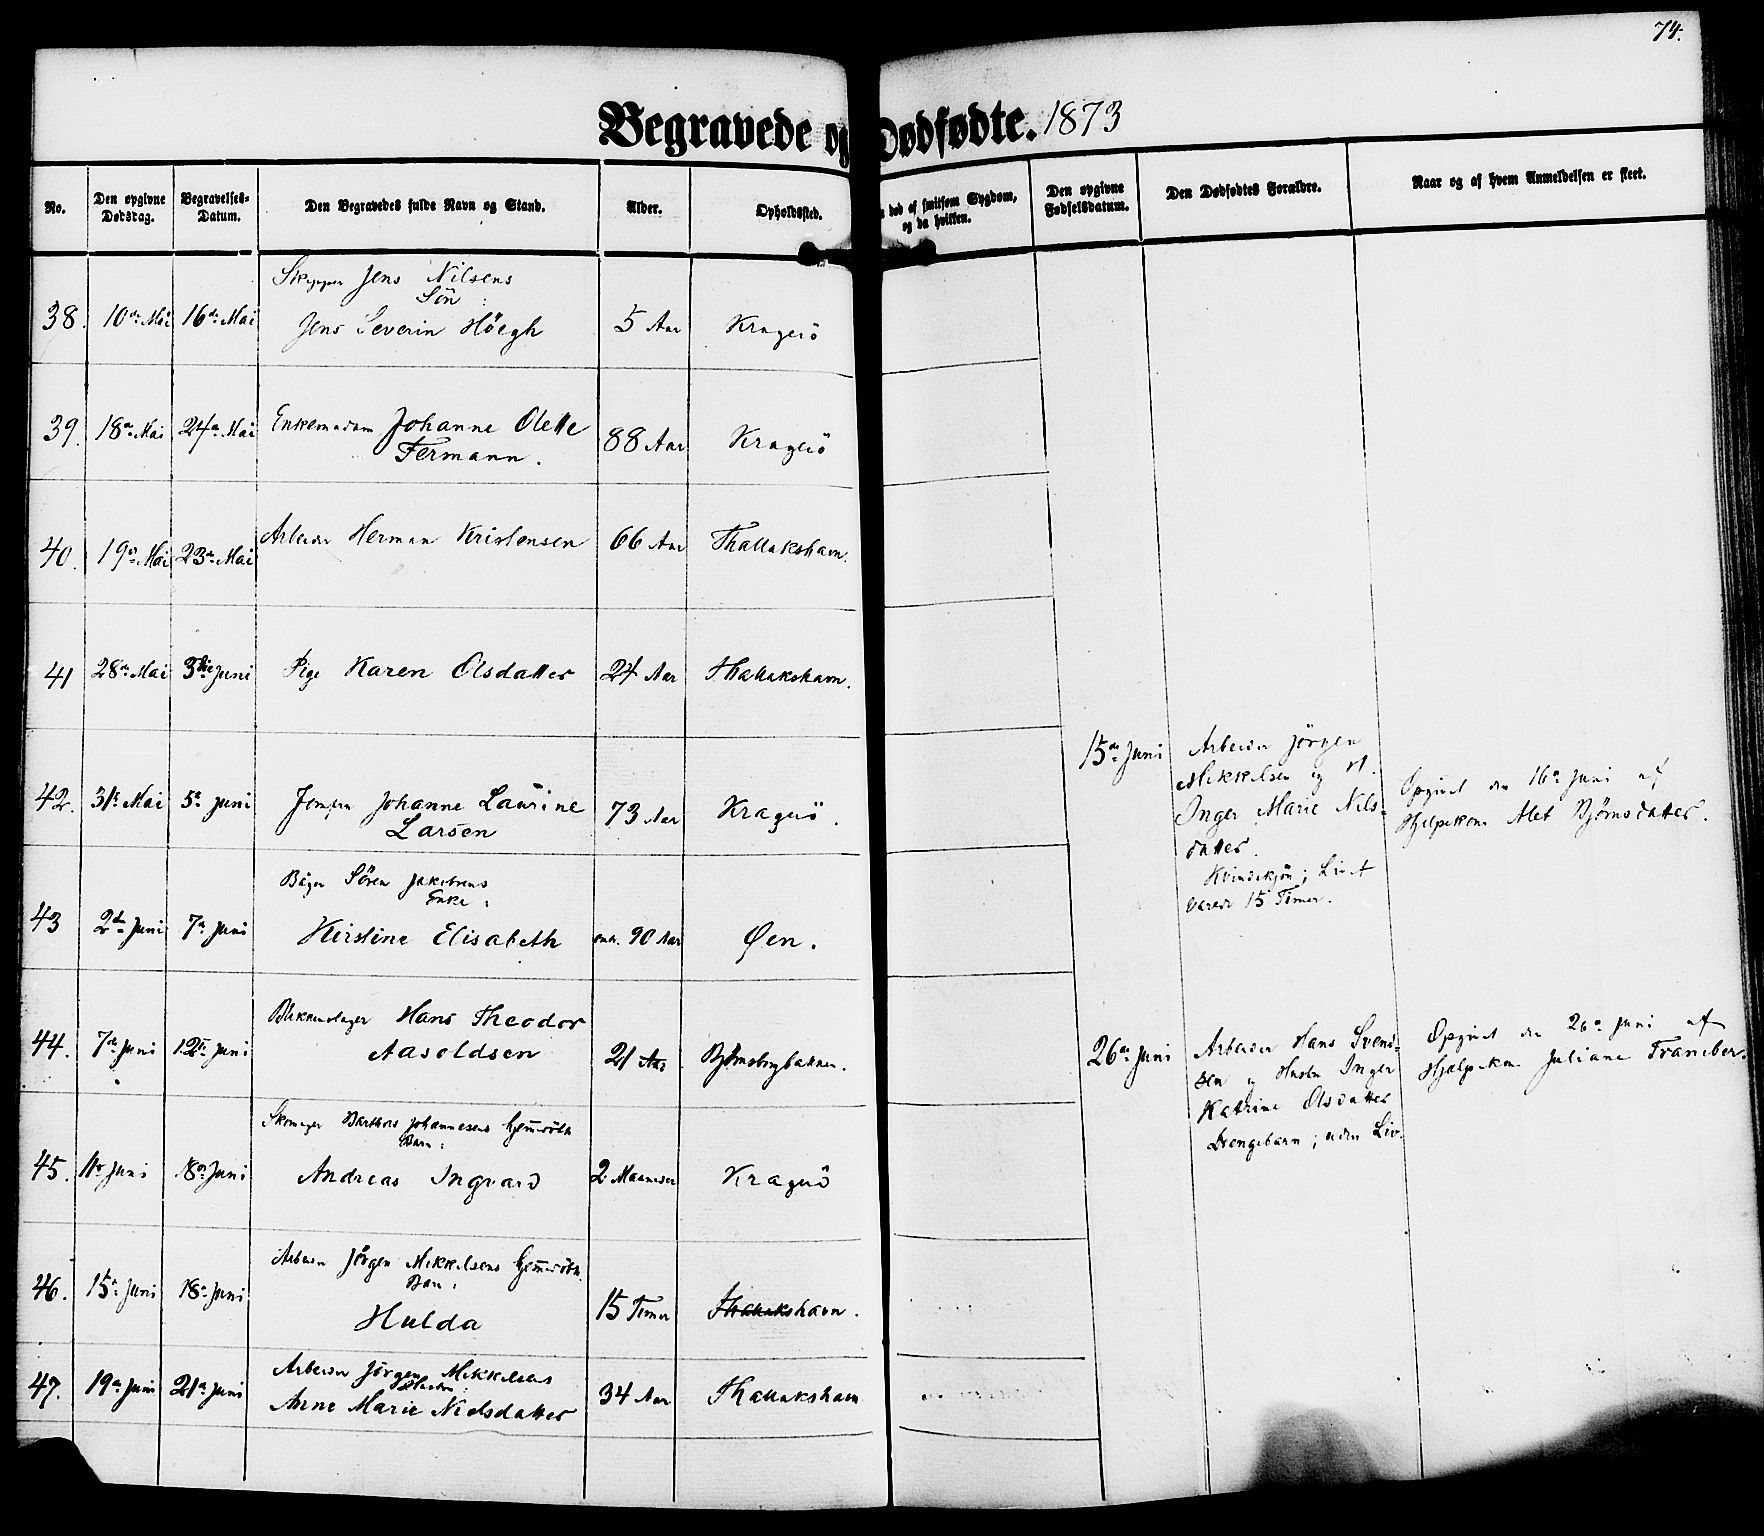 74.
Begravede og Dødfødte. 1873
No.
Den opgivne Dødsdag.
Begravelses-Datum.
Den Begravedes fulde Navn og Stand.
Alder.
Opholdssted.
død af smitsom Sygdom, og da hvilken.
Den opgivne Fødselsdatum.
Den Dødfødtes Forældre.
Naar og af hvem Anmeldelsen er skeet.
Skipper Jens Nilsens
Sön:
38. 10de Mai 16de Mai Jens Severin Höegh 5 Aar Kragerö
39. 18de Mai 24de Mai Enkemadam Johanne Olette 88 Aar Kragerö
Fermann.
40. 19de Mai 23de Mai Arbeider Herman Kristensen 66 Aar Thallakshavn.
41 28de Mai 3die Juni Pige Karen Olsdatter 24 Aar Thallakshavn.
42. 31te Mai 5te Juni Jomfru Johanne Laurine 73 Aar Kragerö.
Larsen
Bager Sören Jakobsens
Enke:
43 2den Juni 7de Juni Kirstine Elisabeth omtr. 90 Aar Øen.
44. 7de Juni 12te Juni Blikkenslager Hans Theodor
Aasoldsen 21 Aar Bjørnsbergbakken.
Skomager Barthols Johannesens hjemmedöbte
Barn:
45. 11te Juni 18de Juni Andreas Ingvard 2 Maaneder Kragerö
Arbeider Jørgen Mikkelsens hjemmedöbte
Barn:
46. 15de Juni 18de Juni Hulda 15 Timer Thallakshavn.
47. 19de Juni 21de Juni Arbeider Jörgen Mikkelsens
Hustru:
Anne Marie Nielsdatter 34 Aar Thallakshavn
15de Juni Arbeider Jörgen
Mikkelsen og H.
Inger Marie Nils-
datter.
Kvindekjön; Livet
varede 15 Timer.
Opgivet den 16de Juni af
Hjelpekone Alet Bjørnsdatter.
26de Juni Arbeider Hans Svend-
sen og Hustru Inger
Katrine Olsdatter
Drengebarn; uden Liv.
Opgivet den 26de Juni af
Hjælpekone Juliane Franciber.